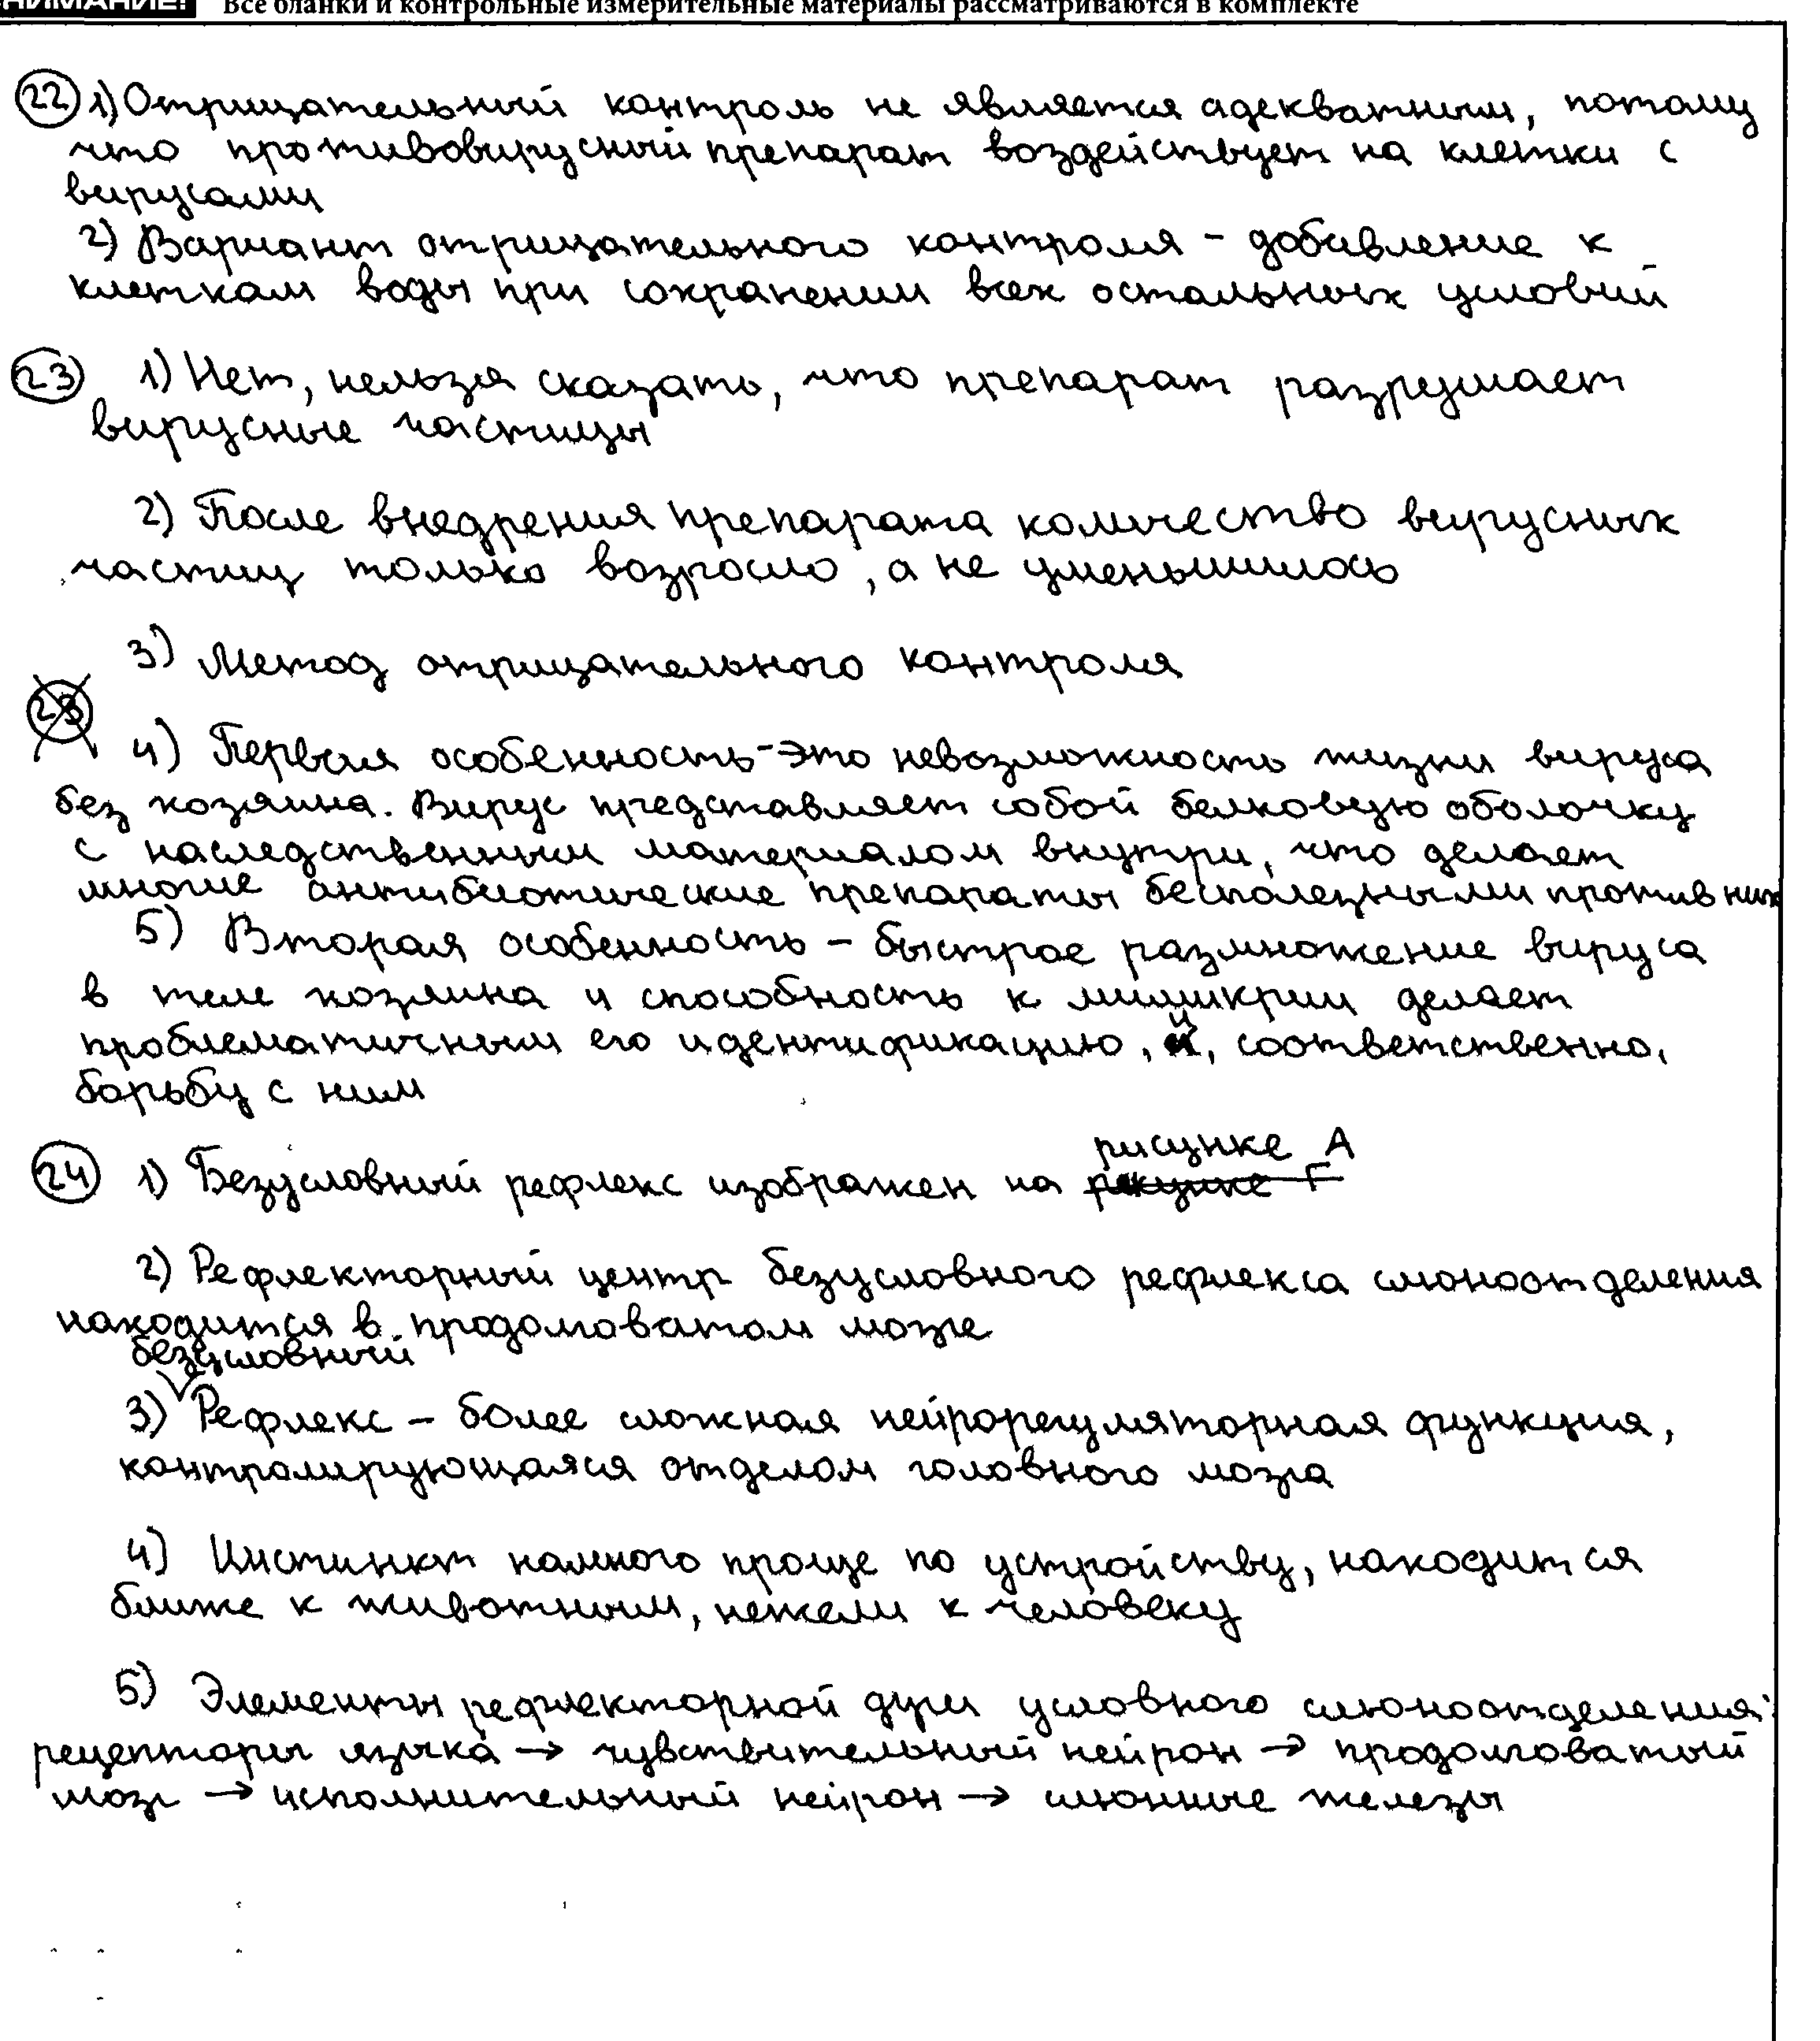 ВНИМАНИЕ! Все бланки и контрольные измерительные материалы рассматриваются в комплекте
22 1) Отрицательный контроль не является адекватным, потому
что противовирусный препарат воздействует на клетки с
вирусами
2) Вариант отрицательного контроля - добавление к
клеткам воды при сохранении всех остальных условий
23 1) Нет, нельзя сказать, что препарат разрушает
вирусные частицы
2) После внедрения препарата количество вирусных
частиц только возросло, а не уменьшилось
3) Метод отрицательного контроля
23
4) Первая особенность - это невозможность жизни вируса
без хозяина. Вирус представляет собой белковую оболочку
с наследственным материалом внутри, что делает
многие антибиотические препараты бесполезными против них
5) Вторая особенность - быстрое размножение вируса
в теле хозяина и способность к мимикрии делает
проблематичным его идентификацию, и, соответственно,
борьбу с ним
24 1) Безусловный рефлекс изображен на рисунке А
2) Рефлекторный центр безусловного рефлекса слюноотделения
находится в продолговатом мозге
безусловный
3) Рефлекс - более сложная нейрорегуляторная функция,
контролирующаяся отделом головного мозга
4) Инстинкт намного проще по устройству, находится
ближе к животным, нежели к человеку
5) Элементы рефлекторной дуги условного слюноотделения:
рецепторы языка → чувствительный нейрон → продолговатый
мозг → исполнительный нейрон → слюнные железы